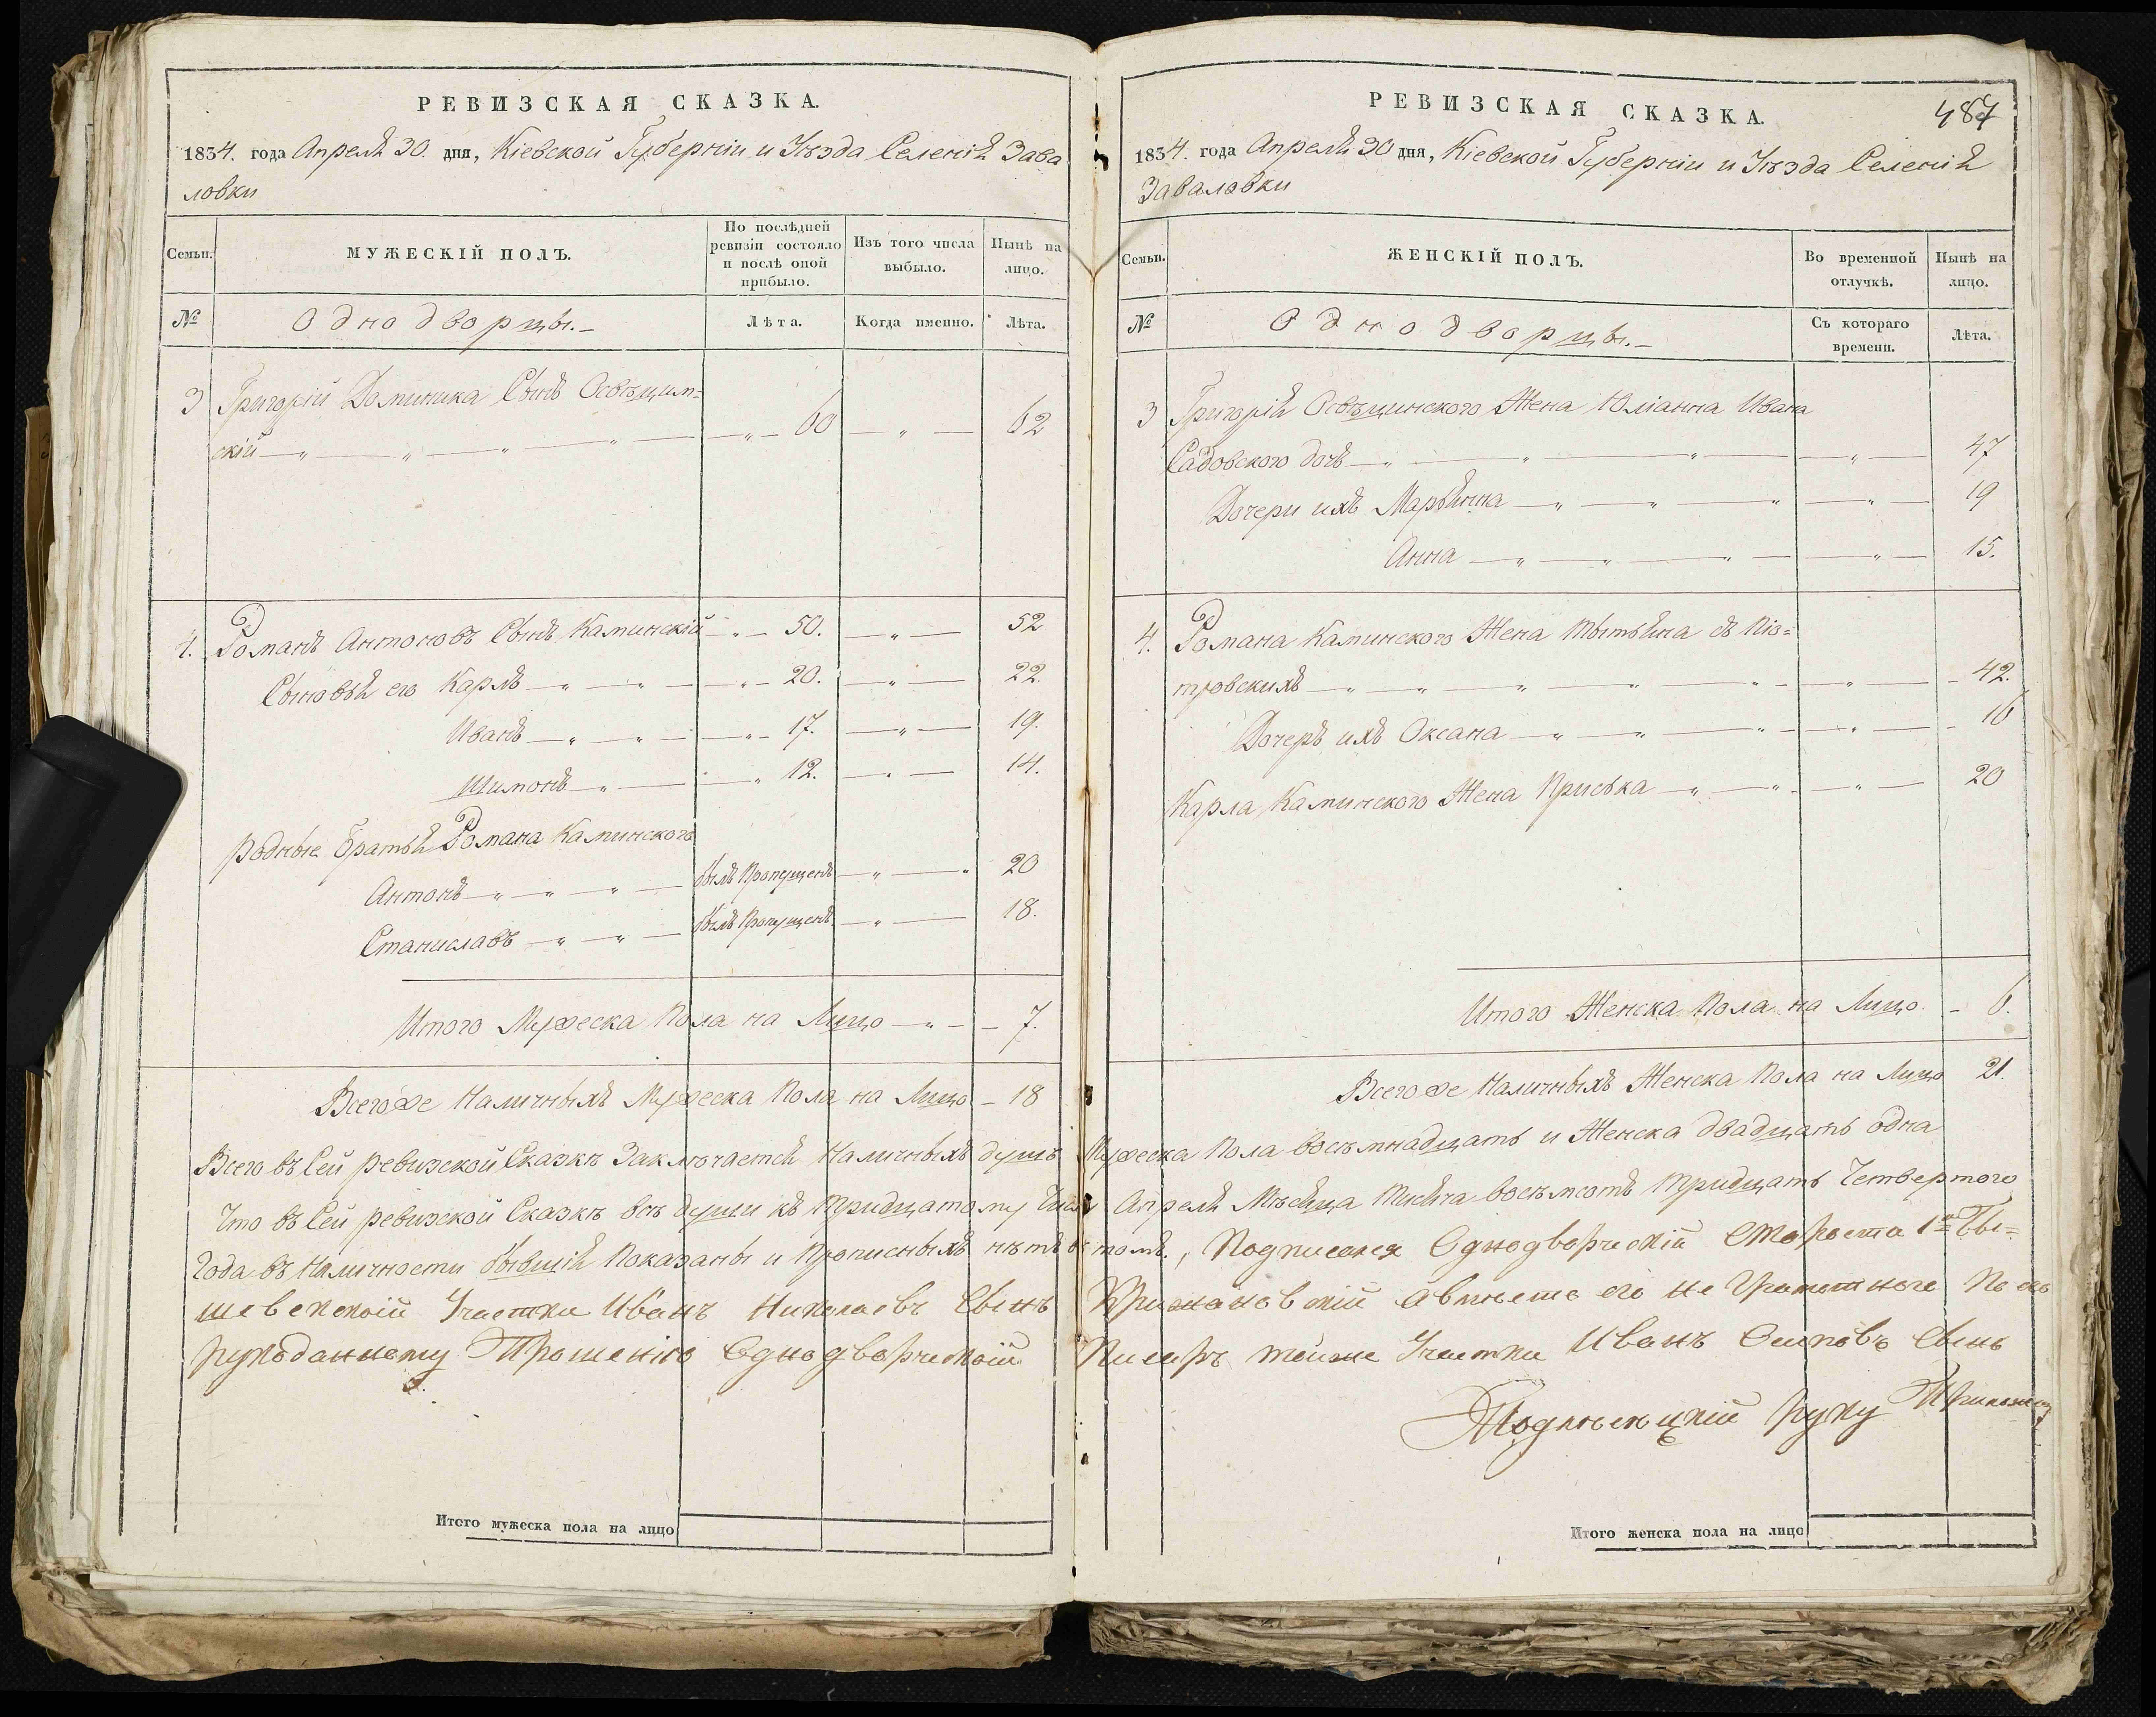 РЕВИЗСКАЯ СКАЗКА.
1834. года Апреля 30. дня, Кіевской Губерніи и Уѣзда Селенія Зава
ловки
Семьи.
МУЖЕСКІЙ ПОЛЪ.
По послѣдней ревизіи состояло и послѣ оной прибыло.
Изъ того числа выбыло.
Нынѣ на лицо.
№
Однодворцы.
Лѣта.
Когда именно.
Лѣта.
3 Григорій Доминика Сынъ Освѣцим=
скій — " — " — " — " — 60 — " — 62
4. Романъ Антоновъ Сынъ Каминскій — " — 50. — " — 52
Сыновья его Карлъ — " — " — " — 20. — " — 22.
Иванъ — " — " — " — 17. — " — 19.
Шимонъ — " — " 12. — " — 14.
родные братья Романа Каминского
Антонъ — " — " — " — былъ Пропущенъ — " — " 20
Станиславъ — " — " — былъ Пропущенъ — " — 18.
Итого Мужеска Пола на Лицо — " — 7.
Всего же Наличныхъ Мужеска Пола на Лицо — 18
Всего въ Сей ревизской Сказкѣ Заключается Наличныхъ душъ
Что въ Сей ревизской Сказкѣ всѣ души къ тридцатому Числу
Года въ Наличности бывшія Показаны и Прописныхъ нѣтъ въ
шевскаій Участки Иванъ Николаевъ Сынъ
рукоданному Прошенію Однодворческій
Итого мужеска пола на лицо
РЕВИЗСКАЯ СКАЗКА.
487
1834. года Апреля 30 дня, Кіевской Губерніи и Уѣзда Селенія
Заваловки
Семьи.
ЖЕНСКІЙ ПОЛЪ.
Во временной отлучкѣ.
Нынѣ на лицо.
№
Однодворцы.
Съ котораго времени.
Лѣта.
3 Григорія Освѣцинского Жена Юліанна Ивана
Садовского дочь — " — " — " — " — 47
Дочери ихъ Марьянна — " — " — " — " — 19
Анна — " — " — " — " — 15.
4. Романа Каминского Жена Мотьяна съ Піо=
тровскихъ — " — " — " — " — " — " — 42.
Дочерь ихъ Оксана — " — " — " — " — 16
Карла Каминского Жена Приська — " — " — " — 20
Итого Женска Пола на Лицо. — 6.
Всего же Наличныхъ Женска Пола на Лицо 21.
Мужеска Пола восѣмнадцать и Женска двадцать одна
Апреля Мѣсяца тисяча восѣмсотъ тридцать Четвертого
томъ., Подписался Однодворческій Староста 1й Бы=
Крижановскій авмѣсто его не Граматного По его
Писарь тойже Участки Иванъ Осиповъ Сынъ
руку Приложилъ
Итого женска пола на лицо